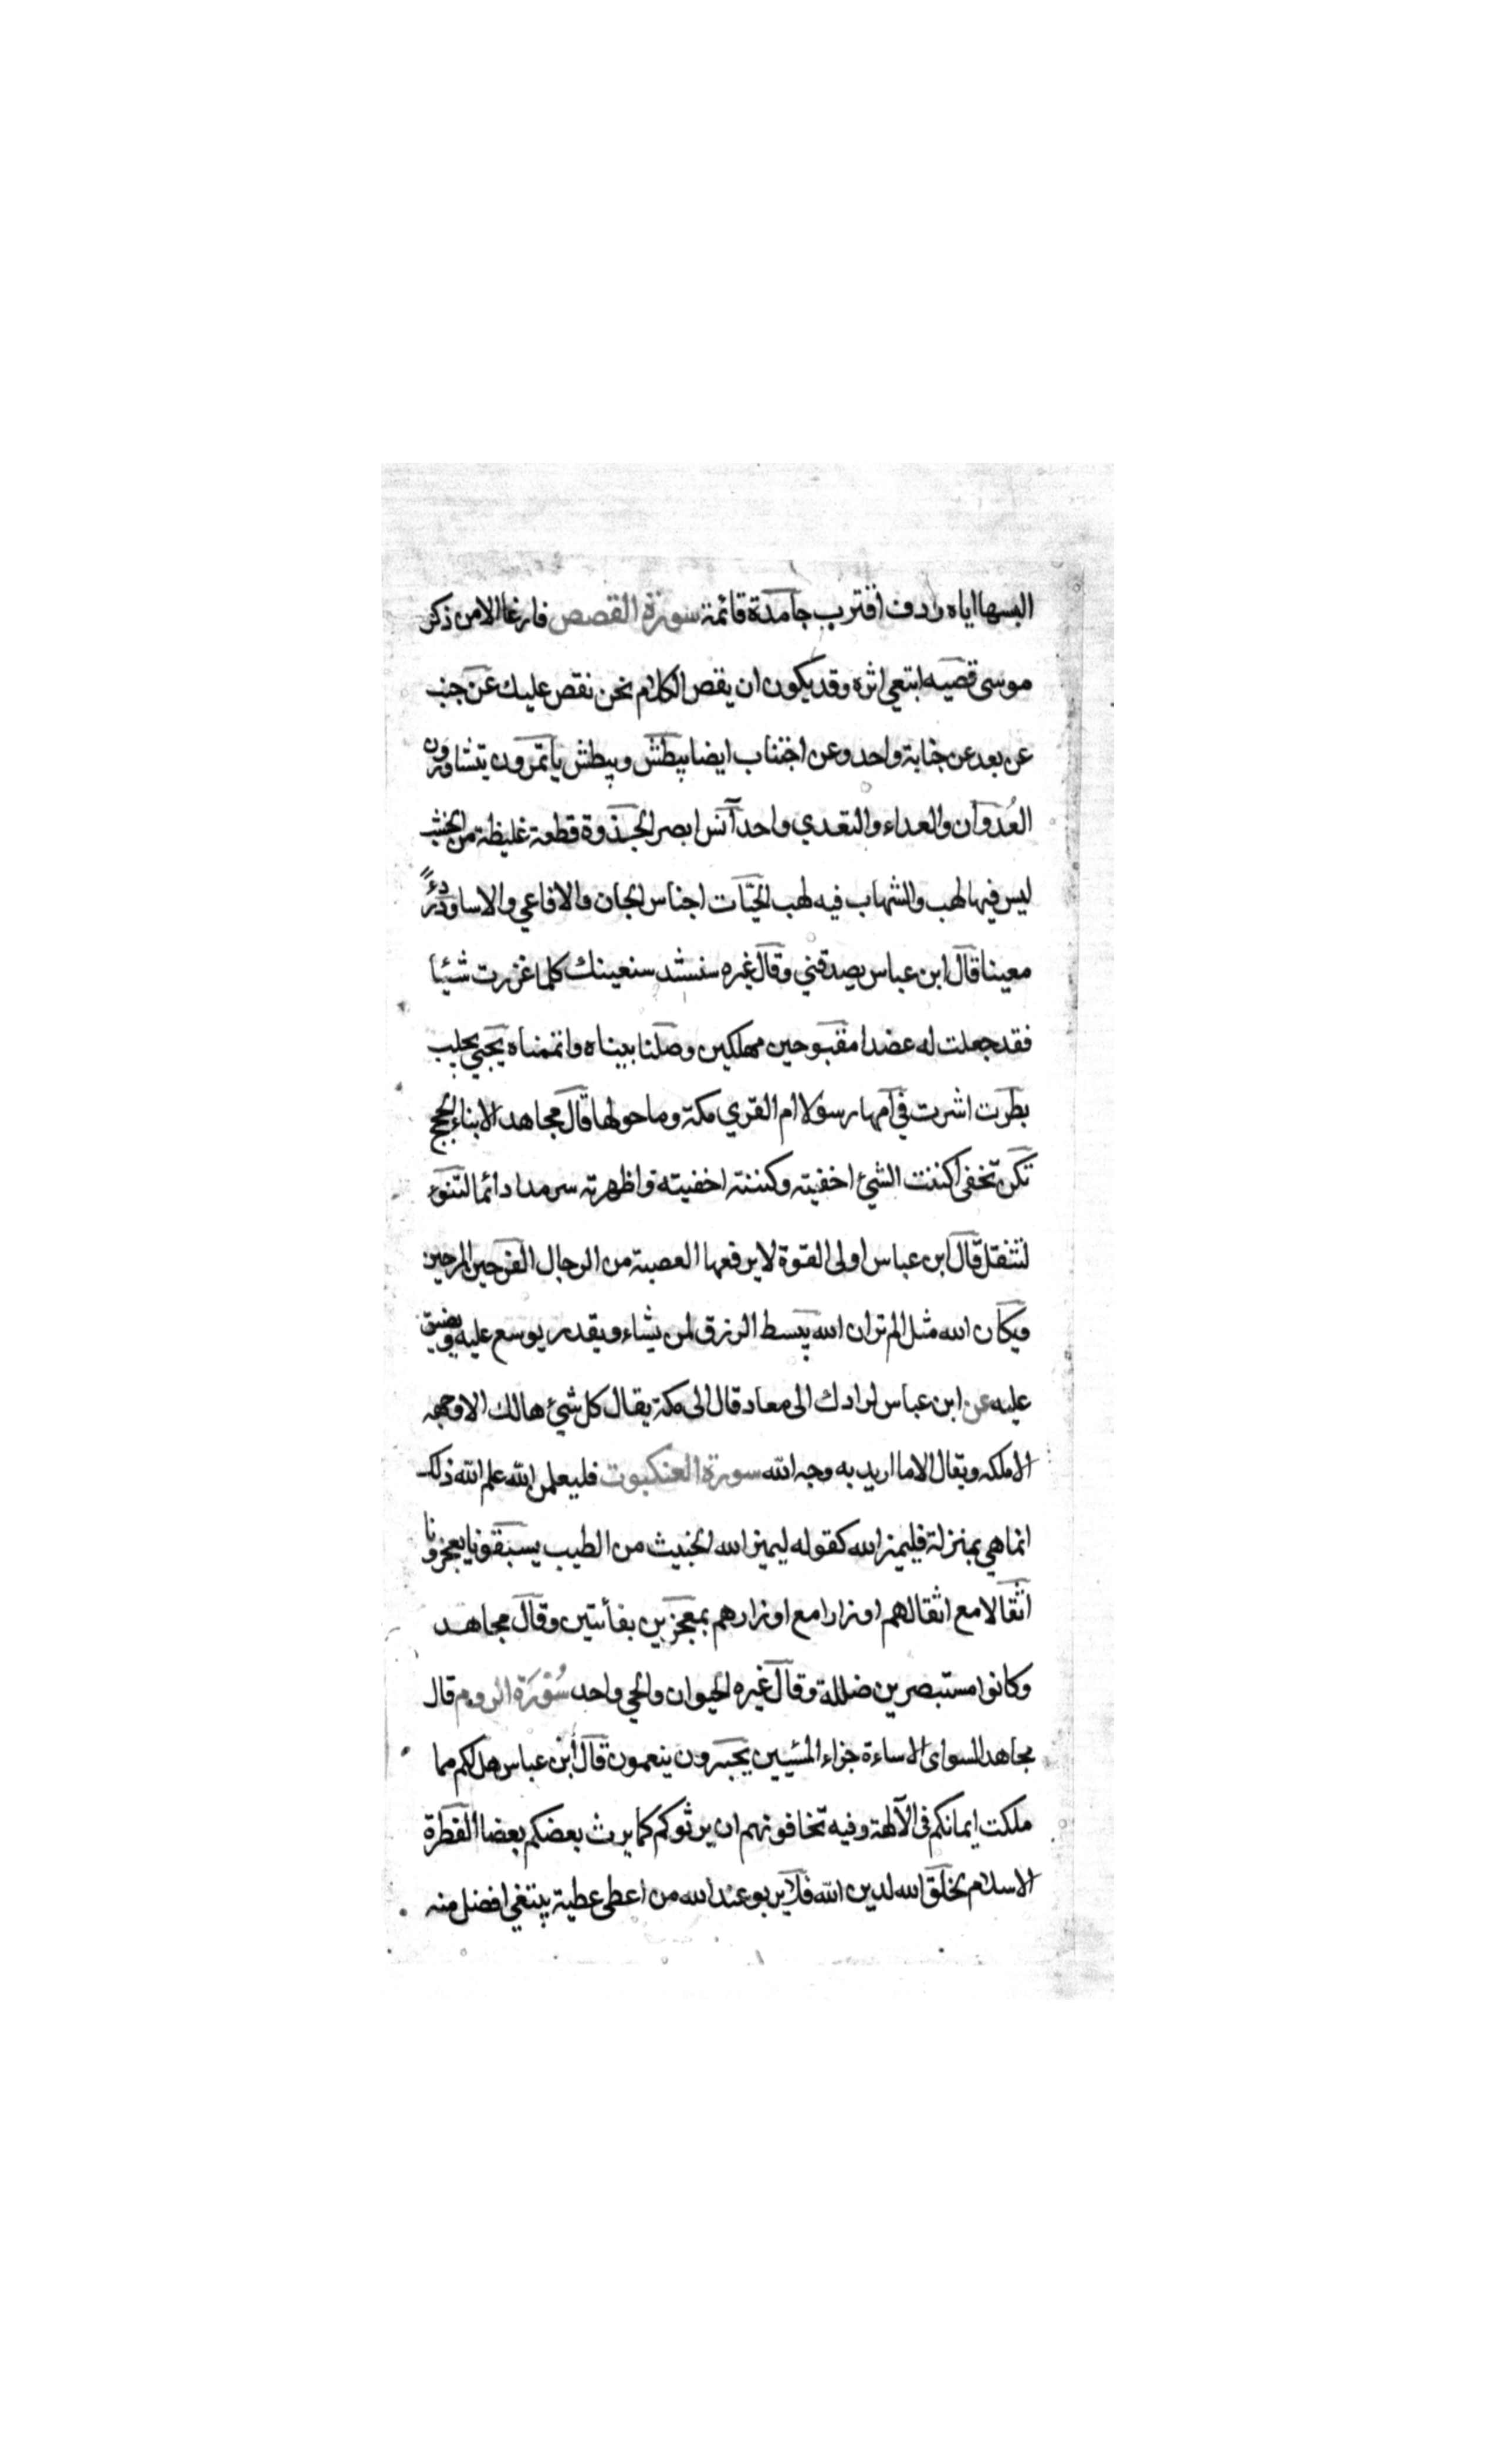 البسها اياه ردف اقترب جامدة قائمة سورة القصص فارغا الا من ذكر
موسى قصيه ابتعي اثره وقد يكون ان يقص الكلام نحن نقص عليك عن جنب
عن بعد عن جنابة واحد وعن اجتناب ايضا يبطش ويبطش ياتمرون يتشاورون
العُدوان والعداء والتعدي واحد آنس ابصر الجذوة قطعة غليظة من الخشب
ليس فيها لهب والشهاب فيه لهب الحيّات اجناس الجان والافاعي والاساود ردءًا
معينا قال ابن عباس يصدقني وقال غيره سنشد سنعينك كلما عززت شيئا
فقد جعلت له عضدا مقبوحين مهلكين وصلنا بيناه واتممناه يجبي يجلب
بطرت اشرت في امها رسولا ام القرى مكة وما حولها قال مجاهد الانباء الحجج
تكن تخفي اكننت الشئ اخفيته وكننته اخفيته واظهرته سرمدا دائما لتنوء
لتثقل قال ابن عباس اولى القوة لا يرفعها العصبة من الرجال الفرحين المرحين
ويكان الله مثل الم تر ان الله يبسط الرزق لمن يشاء ويقدر يوسع عليه ويضيق
عليه عن ابن عباس لرادك الى معاد قال الى مكة يقال كل شئ هالك الا وجهه
الا ملكه ويقال الا ما اريد به وجه الله سورة العنكبوت فليعلمن الله علم الله ذلك
انما هي بمنزلة فليميز الله كقوله ليميز الله الخبيث من الطيب يسبقونا يعجزونا
اثقالا مع اثقالهم اوزارا مع اوزارهم بمعجزين بفائتين وقال مجاهد
وكانوا مستبصرين ضللة وقال غيره الحيوان والحي واحد سُورَة الروم قال
مجاهد السواى الاساءة جزاء المسيئين يحبرون ينعمون قال ابن عباس هل لكم مما
ملكت ايمانكم فى الآلهة وفيه تخافونهم ان يرثوكم كما يرث بعضكم بعضا الفطرة
الاسلام لخلق الله لدين الله فلا يربو عند الله من اعطى عطية يبتغي افضل منه